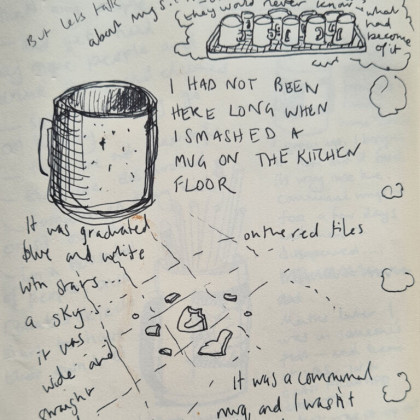 But lets talk
about mugs.
they would never know
what
had
become
of it
I HAD NOT BEEN
HERE LONG WHEN
I SMASHED A
MUG ON THE KITCHEN
FLOOR
It was graduated
blue and white
with stars...
a sky
it was
wide and
straight
on the red tiles
It was a communal
mug, and I wasn't